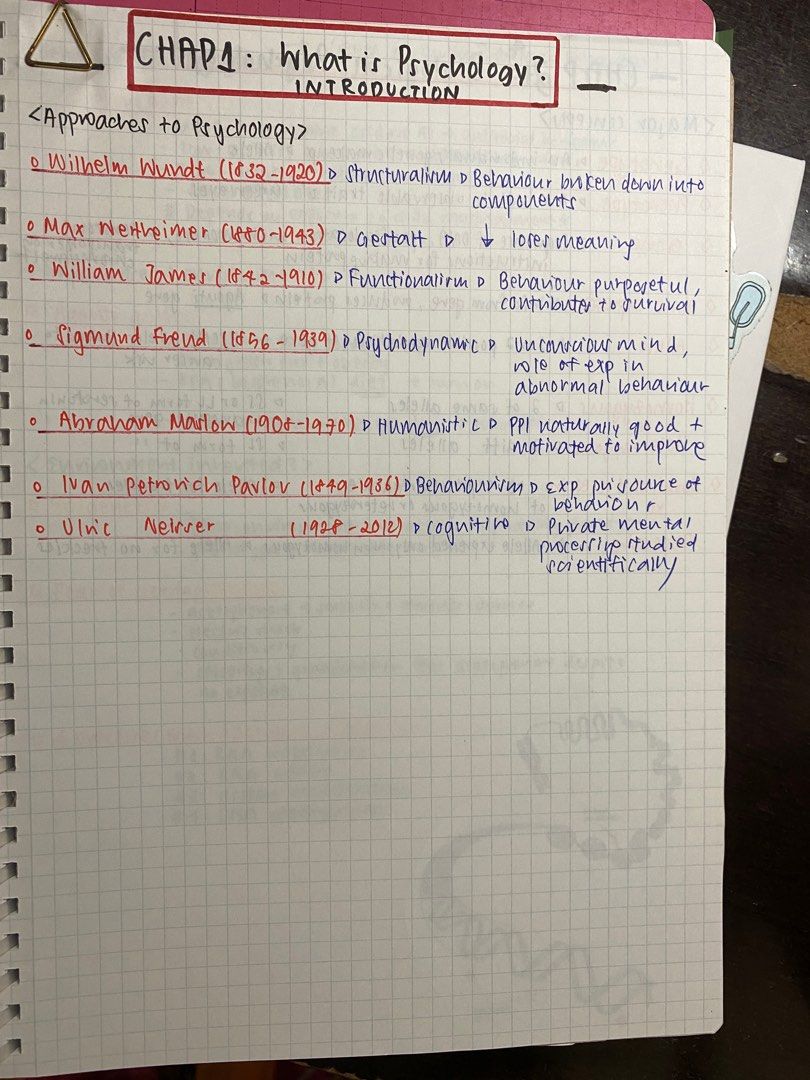 CHAP1: What is Psychology?
INTRODUCTION
<Approaches to Psychology>
Wilhelm Wundt (1832-1920) ▷ Structuralism ▷ Behaviour broken down into
components
Max Wertheimer (1880-1943) ▷ Gestalt ▷ ↓ loses meaning
William James (1842-1910) ▷ Functionalism ▷ Behaviour purposeful,
contributes to survival
Sigmund Freud (1856-1939) ▷ Psychodynamic ▷ Unconscious mind,
role of exp in
abnormal behaviour
Abraham Maslow (1908-1970) ▷ Humanistic ▷ PPl naturally good +
motivated to improve
Ivan Petrovich Pavlov (1849-1936) ▷ Behaviourism ▷ Exp source of
behaviour
Ulric Neisser (1928-2012) ▷ Cognitive ▷ Private mental
processing studied
scientifically